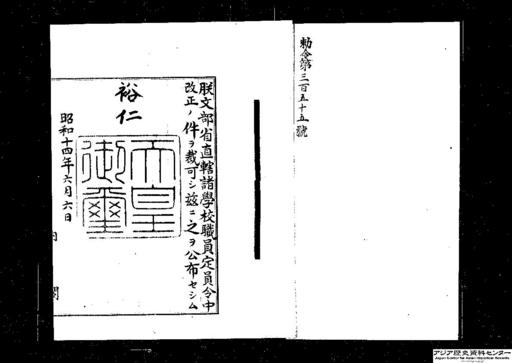 勅令第三百五十五號
朕文部省直轄諸學校職員定員令中
改正ノ件ヲ裁可シ茲ニ之ヲ公布セシム
裕仁
天皇
御璽
昭和十四年六月六日
内
閣
アジア歴史資料センター
Japan Center for Asian Historical Records